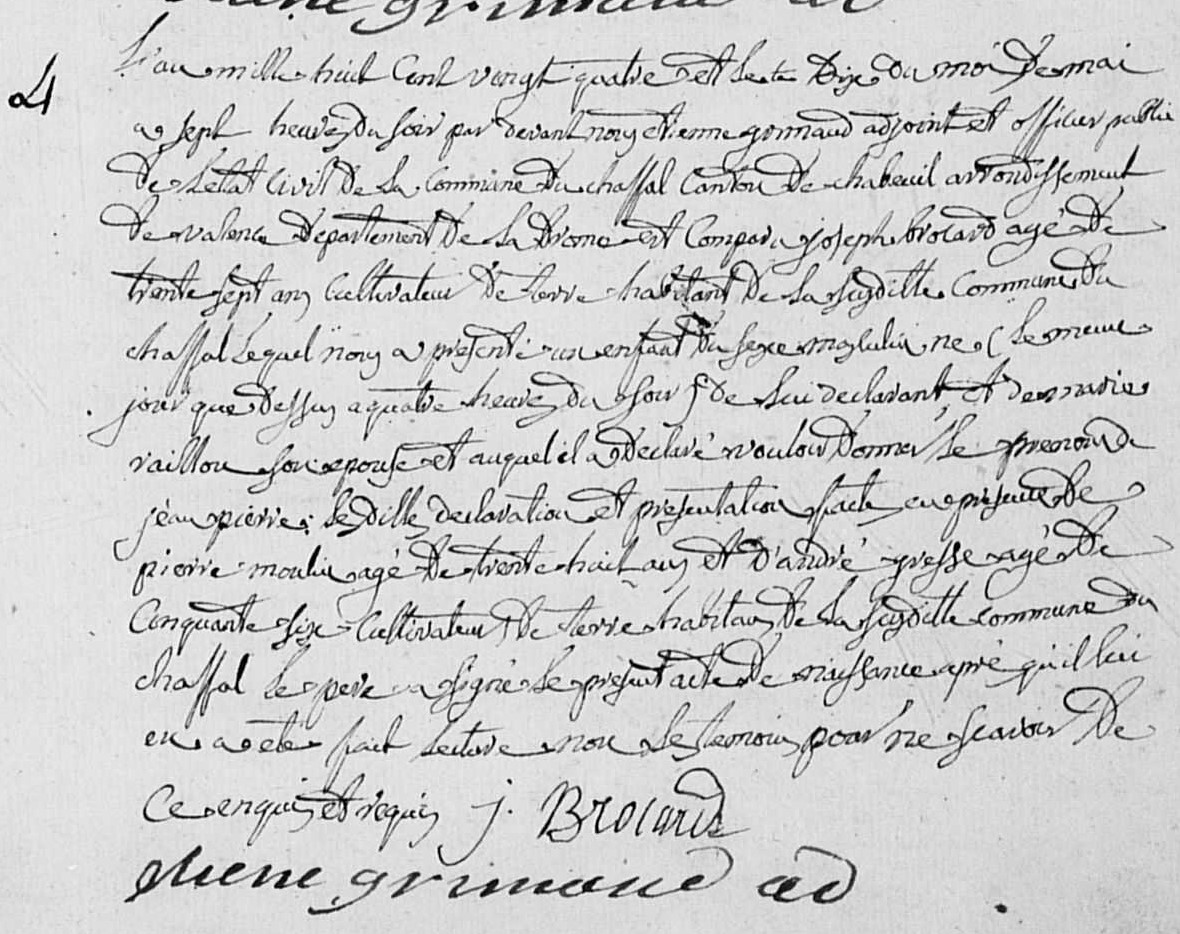 etienne grimaud ad
4
L'an mille huit Cent vengt quatre et le dix du moi de mai
a sept heures du soir par devant nous etienne grimaud adjoint et officier public
de Letat Civil de la Commune du chaffal Canton de chabeuil arrondissement
de valence departement de la Drome est Comparu joseph brocard agé de
trente sept ans Cultivateur de terre habitant de la Commune du
chaffal Lequel nous a presenté un enfant du sexe masculin ne (le meme
jour que dessus a quatre heures du soir) de lui declarant et de marie
vaillon son epouse et auquel il a declaré vouloir donner le prenom de
jean pierre: les dittes declaration et presentation faite en presence de
pierre moulin agé de trente huit ans et d'andré gresse agé de
Cinquante six Cultivateurs de terre habitans de la commune du
chaffal le pere a signé le present acte de naissance apré qu'il lui
en a eté fait lecture non les temoins pour ne scavoir de
Ce enquis et requis j. Brocard
etiene grimaud ad